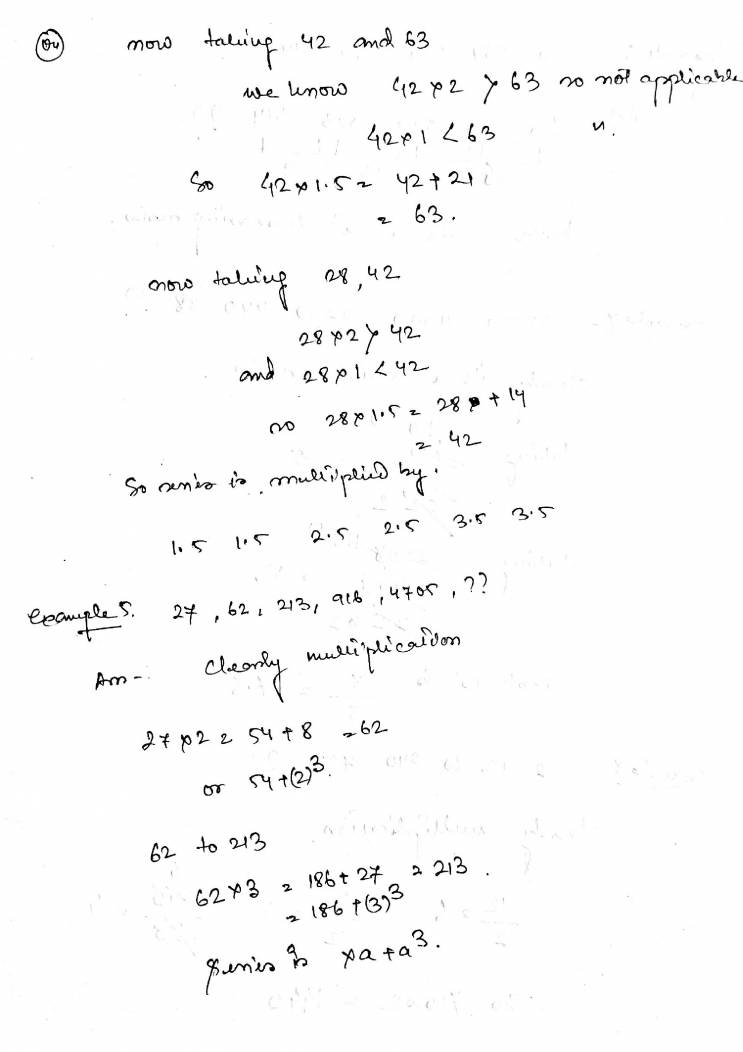 04 now taking 42 and 63
we know 42×2 > 63 so not applicable
42×1 < 63 ".
So 42×1.5 = 42+21
= 63.
now taking 28, 42
28×2 > 42
and 28×1 < 42
so 28×1.5 = 28 + 14
= 42
So series is multiplied by.
1.5 1.5 2.5 2.5 3.5 3.5
Example 5. 27, 62, 213, 916, 4705, ??
Ans - Clearly multiplication
27×2 = 54+8 = 62
or 54+(2)³.
62 to 213
62×3 = 186+27 = 213.
= 186+(3)³
Series is ×a+a³.